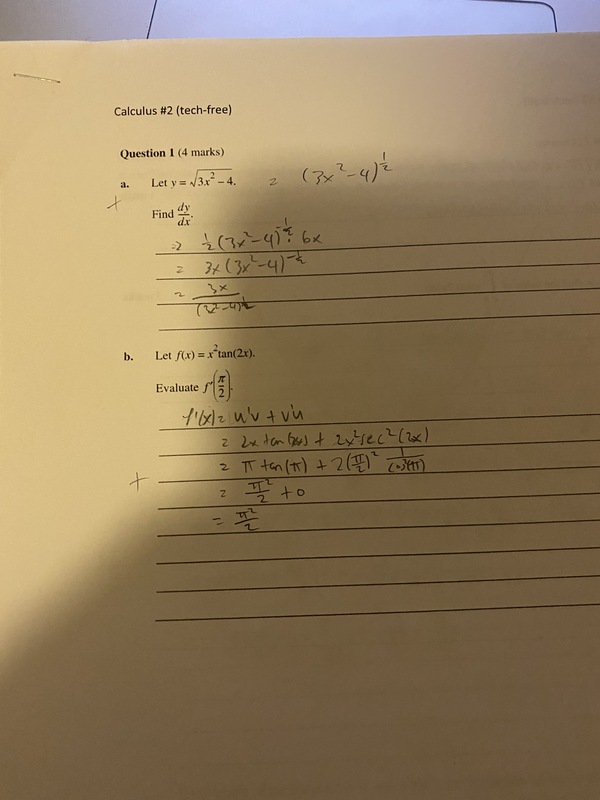 Calculus #2 (tech-free)
Question 1 (4 marks)
a. Let y = √(3x² – 4). = (3x² – 4)^(1/2)
Find dy/dx.
=> 1/2 (3x² – 4)^(-1/2) · 6x
= 3x (3x² – 4)^(-1/2)
= 3x / (3x² – 4)^(1/2)
b. Let f(x) = x² tan(2x).
Evaluate f'(π/2).
f'(x) = u'v + v'u
= 2x tan(2x) + 2x² sec²(2x)
= π tan(π) + 2(π/2)² 1/cos²(π)
= π²/2 + 0
= π²/2